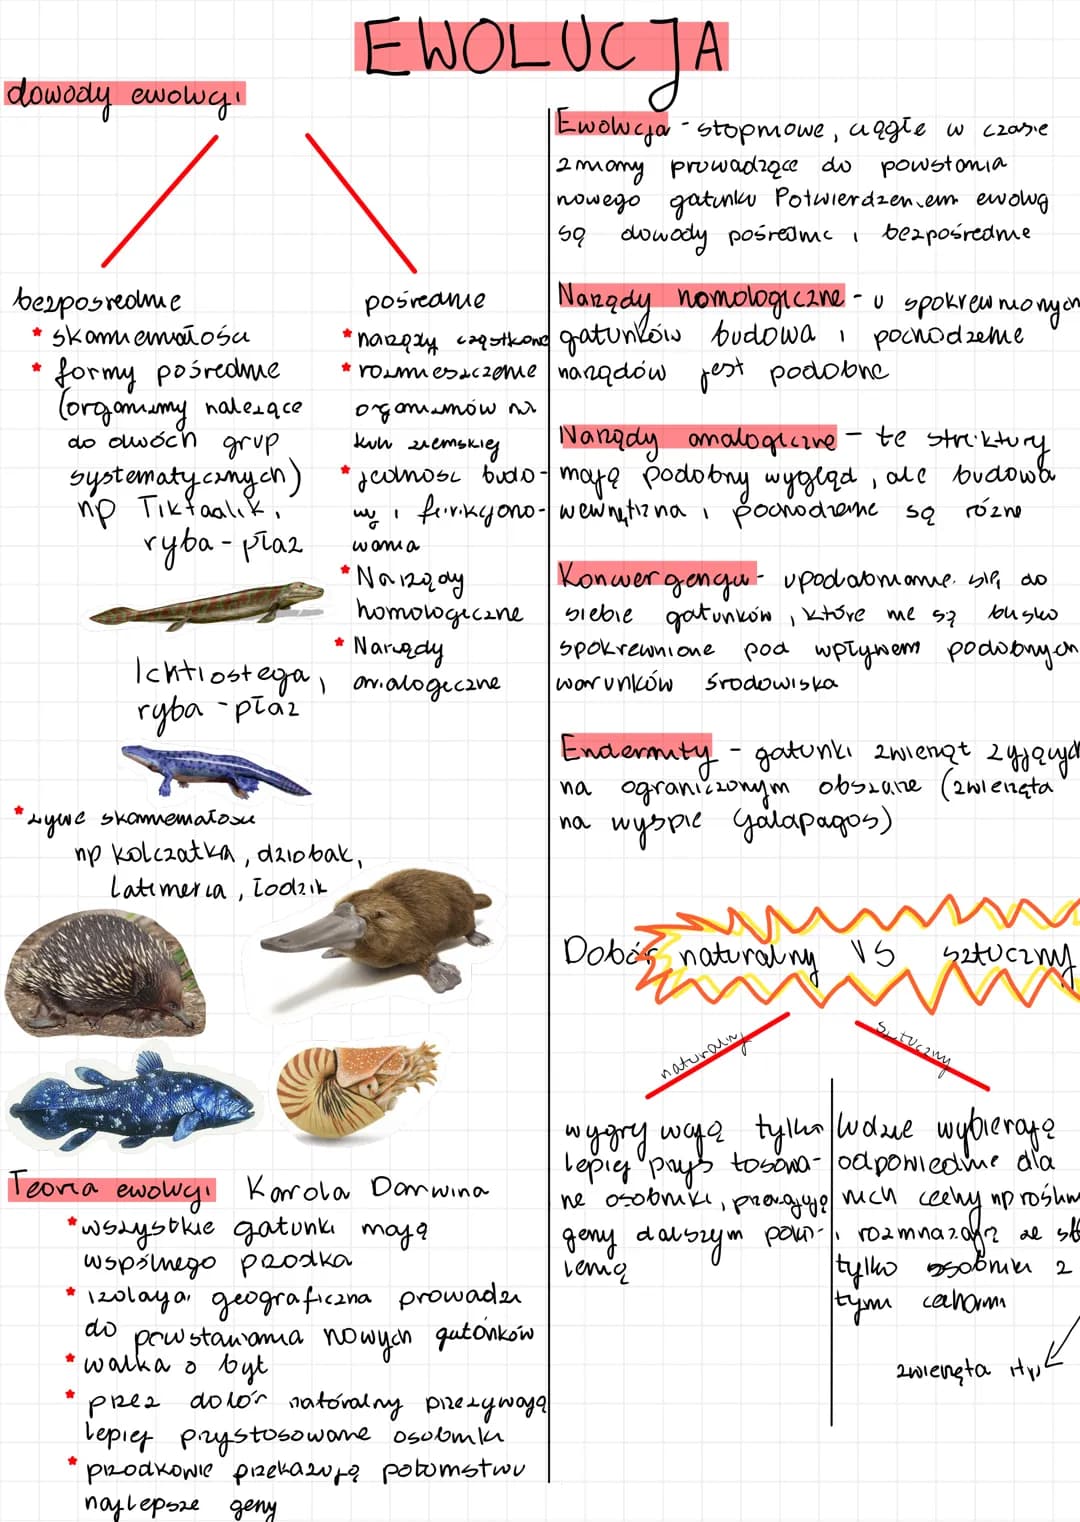 EWOLUCJA
dowody ewolucji
bezpośrednie
* skamieniałości
* formy pośrednie
(organizmy należące
do dwóch grup
systematycznych)
np Tiktaalik,
ryba - płaz
Ichtiostega,
ryba - płaz
* żywe skamieniałości
np kolczatka, dziobak,
Latimeria, Łodzik
pośrednie
* narządy cząstkowe
* rozmieszczenie
organizmów na
kuli ziemskiej
* jedność budo-
wy i funkcjono-
wania
* Narządy
homologiczne
* Narządy
analogiczne
Teoria ewolucji Karola Darwina
* wszystkie gatunki mają
wspólnego przodka
* izolacja geograficzna prowadzi
do powstawania nowych gatónków
* walka o byt
* przez dobór natóralny przeżywają
lepiej przystosowane osobniki
* przodkowie przekazują potomstwu
najlepsze geny
Ewolucja - stopniowe, ciągłe w czasie
zmiany prowadzące do powstania
nowego gatunku Potwierdzeniem ewolucji
są dowody pośrednie i bezpośrednie
Narządy homologiczne - u spokrewnionych
gatunków budowa i pochodzenie
narządów jest podobne
Narządy analogiczne - te struktury
mają podobny wygląd, ale budowa
wewnętrzna i pochodzenie są różne
Konwergencja - upodabnianie się do
siebie gatunków, które nie są blisko
spokrewnione pod wpływem podobnych
warunków środowiska
Endemity - gatunki zwierząt żyjących
na ograniczonym obszarze (zwierzęta
na wyspie Galapagos)
Dobór naturalny VS sztuczny
naturalny
sztuczny
wygrywają tylko
lepiej przystosowa-
ne osobniki, przekazują
geny dalszym poko-
lenią
ludzie wybierają
odpowiednie dla
nich cechy np roślin
i rozmnażają ze
tylko osobniki z
tymi cechami
zwierzęta itp